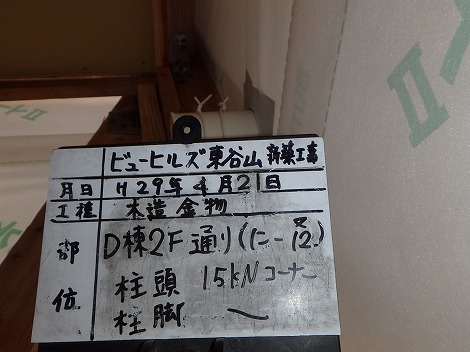 ビューヒルズ東谷山 新築工事
月日 H29年4月21日
工種 木造金物
部位 D棟2F通り(に-12)
柱頭 15kNコーナー
柱脚 〜
II